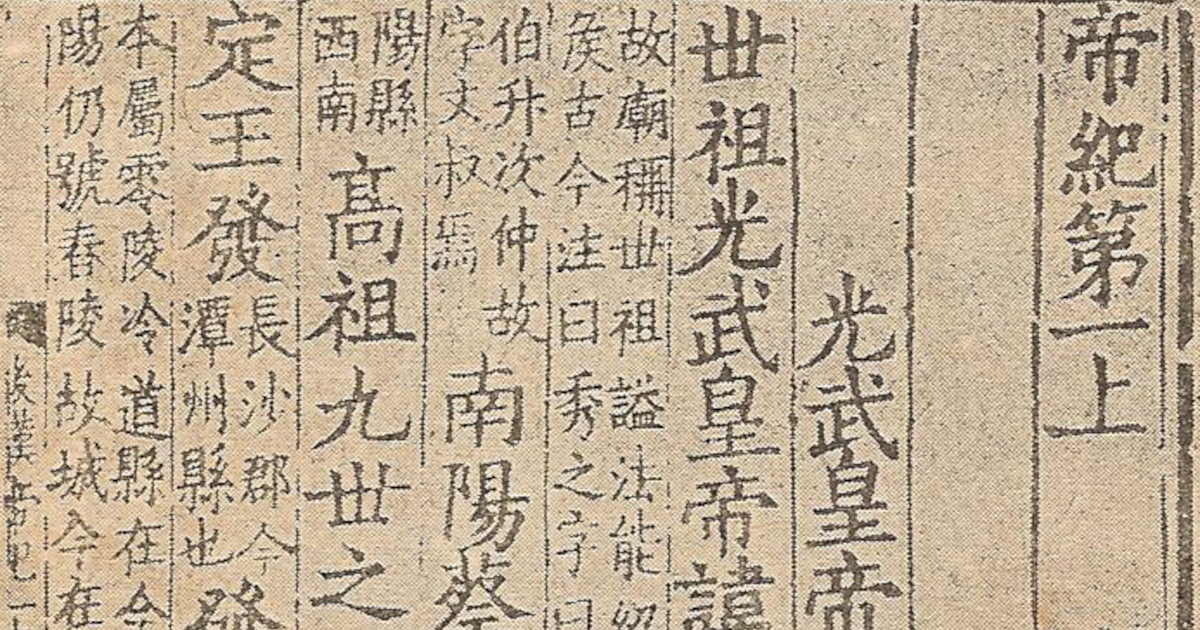 帝紀第一上
光武皇帝
世祖光武皇帝諱
故廟稱世祖謚法能紹
矦古今注曰秀之字曰
伯升次仲故
字文叔焉
南陽蔡
陽縣
西南
髙祖九世之
定王發
長沙郡今
潭州縣也
發
本屬零陵冷道縣在今
陽仍號舂陵故城今在
後漢帝紀一